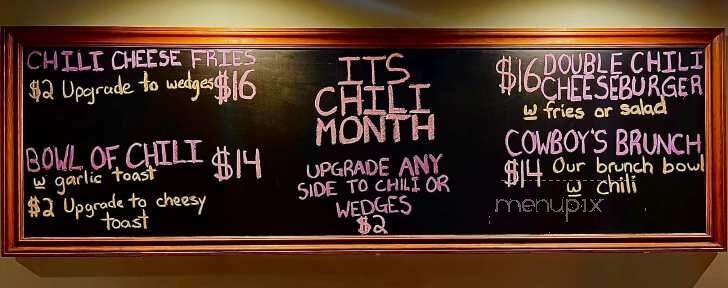 CHILI CHEESE FRIES
$2 Upgrade to wedges $16
BOWL OF CHILI $14
w garlic toast
$2 Upgrade to cheesy
toast
ITS
CHILI
MONTH
UPGRADE ANY
SIDE TO CHILI OR
WEDGES
$2
$16 DOUBLE CHILI
CHEESEBURGER
w fries or salad
COWBOY'S BRUNCH
$14 Our brunch bowl
w chili
menupix